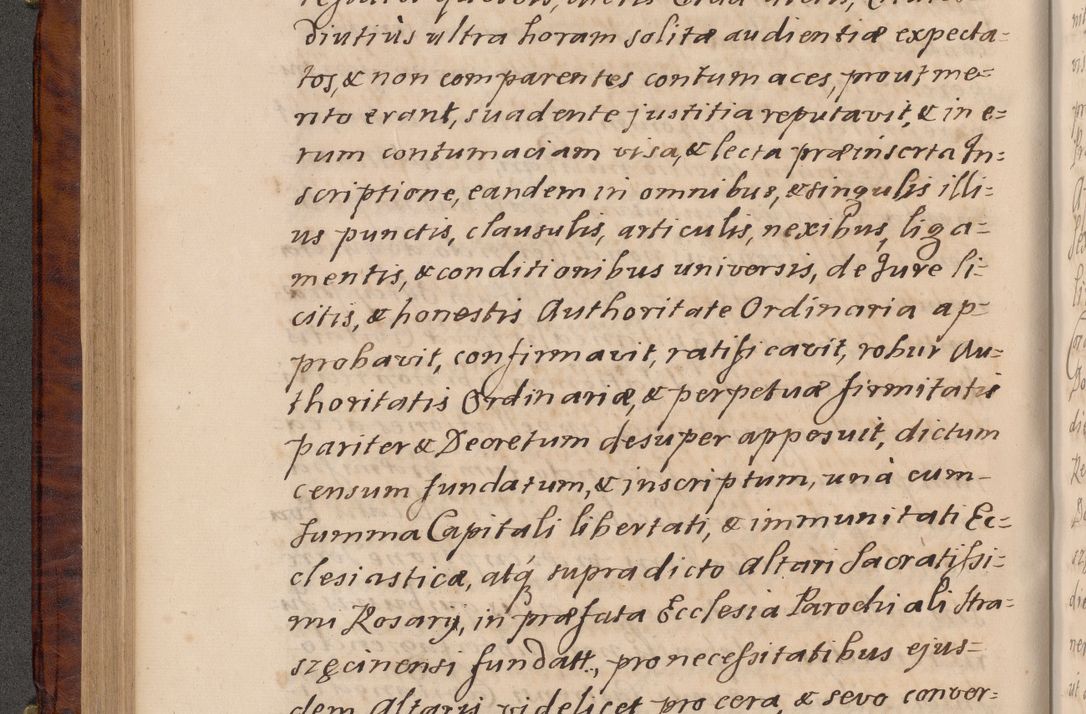 diutiùs ultra horam solitæ audientiæ expecta=
tos, & non comparentes contumaces, prout me=
rito erant, suadente justitia reputavit, & in e=
rum contumaciam visa, & lecta præinserta In=
scriptione, eandem in omnibus, & singulis illi=
us punctis, clausulis, articulis, nexibus, liga=
mentis, & conditionibus universis, de Jure li=
citis, & honestis Authoritate Ordinaria ap=
probavit, confirmavit, ratificavit, robur Au=
thoritatis Ordinariæ, & perpetuæ firmitatis
pariter & Decretum desuper apposuit, dictum
censum fundatum, & inscriptum, unà cum
summa Capitali libertati, & immunitati Ec=
clesiasticæ, atq́ supradicto Altari Sacratissi=
mi Rosarÿ, in præfata Ecclesia Parochiali Stra=
szęcinensi fundatt., pro necessitatibus ejus=
dem Altaris videlicet pro cera, & sevo conver=